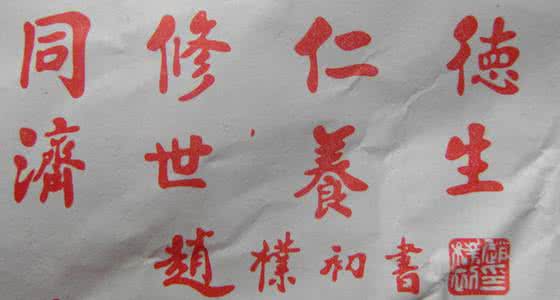 同修仁德
濟世養生
趙樸初書